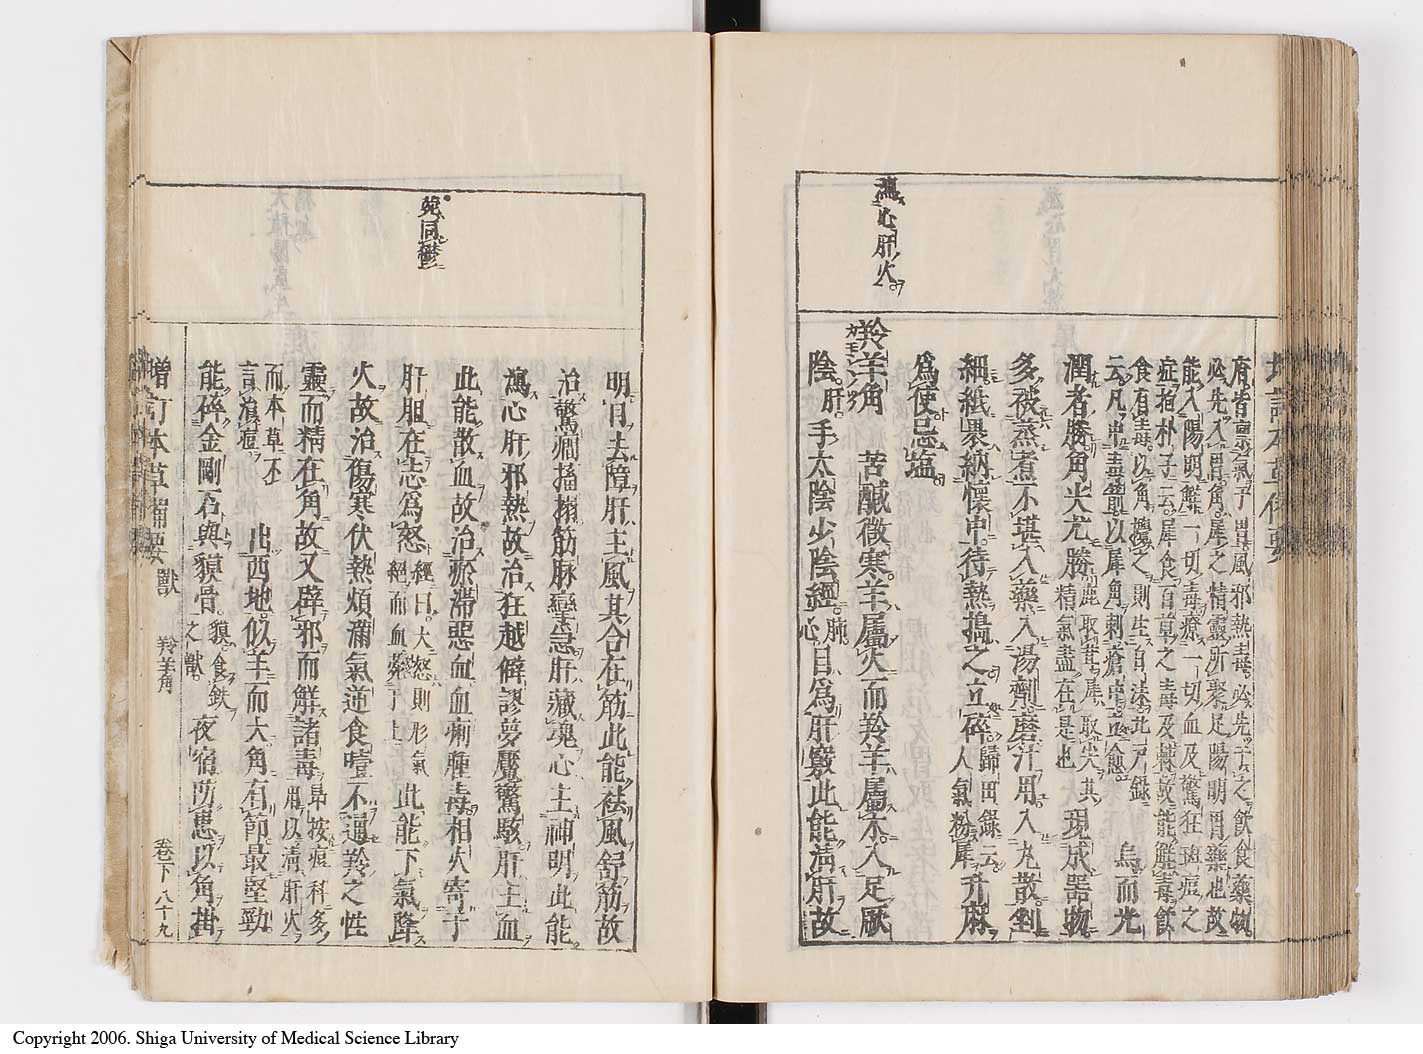 増訂本草備要
瀉心肝火
府皆稟氣于胃風邪熱毒必先干之飲食藥物
必先入胃角犀之精靈所聚足陽明胃藥也故
能入陽明解一切毒療一切血及驚狂斑痘之
症抱朴子云犀食百草之毒及棘故能解毒飲
食有毒以角攪之則生白沫北戸録
云凡中毒箭以犀角刺瘡中立愈
烏而光
潤者勝角尖尤勝鹿取茸犀取尖其精氣盡在是也現成器物
多被蒸煮不堪入藥入湯劑磨汁用入丸散剉
細紙裹納懷中待熱搗之立碎歸田録云人氣粉犀升麻
爲使忌塩
羚羊角 苦鹹微寒羊屬火而羚羊屬木入足厥
陰肝手太陰少陰經肺心目爲肝竅此能清肝故
宛同鬱
明目去障肝主風其合在筋此能祛風舒筋故
治驚癇搐搦筋脉攣急肝藏魂心主神明此能
瀉心肝邪熱故治狂越僻謬夢魘驚駭肝主血
此能散血故治瘀滯惡血血痢腫毒相火寄于
肝胆在志爲怒經曰大怒則形氣絕而血菀于上此能下氣降
火故治傷寒伏熱煩滿氣逆食噎不通羚之性
靈而精在角故又辟邪而解諸毒昂按痘科多用以清肝火
而本草不言治痘
出西地似羊而大角有節最堅勁
能碎金剛石與貘骨貘食鉄之獸夜宿防患以角掛
増訂本草備要 獸 羚羊角 卷下 八十九
Copyright 2006. Shiga University of Medical Science Library